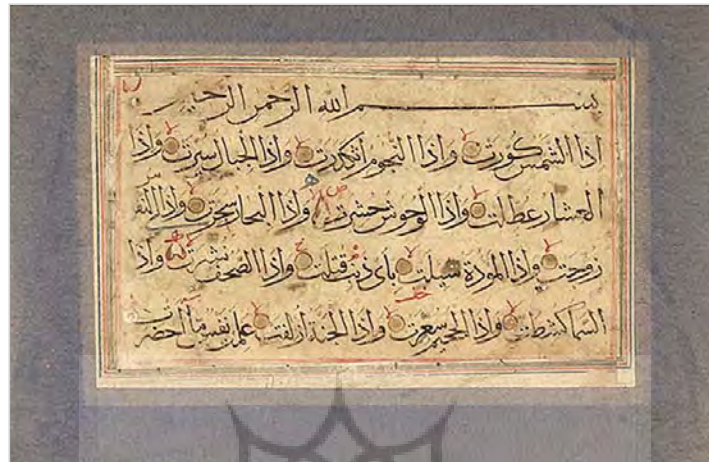 بسم الله الرحمن الرحیم
اذا الشمس کورت واذا النجوم انکدرت واذا الجبال سیرت واذا
العشار عطلت واذا الوحوش حشرت واذا البحار سجرت واذا النفو
زوجت واذا الموءدة سئلت بای ذنب قتلت واذا الصحف نشرت واذا
السما کشطت واذا الجحیم سعرت واذا الجنة ازلفت علمت نفس ما احضرت